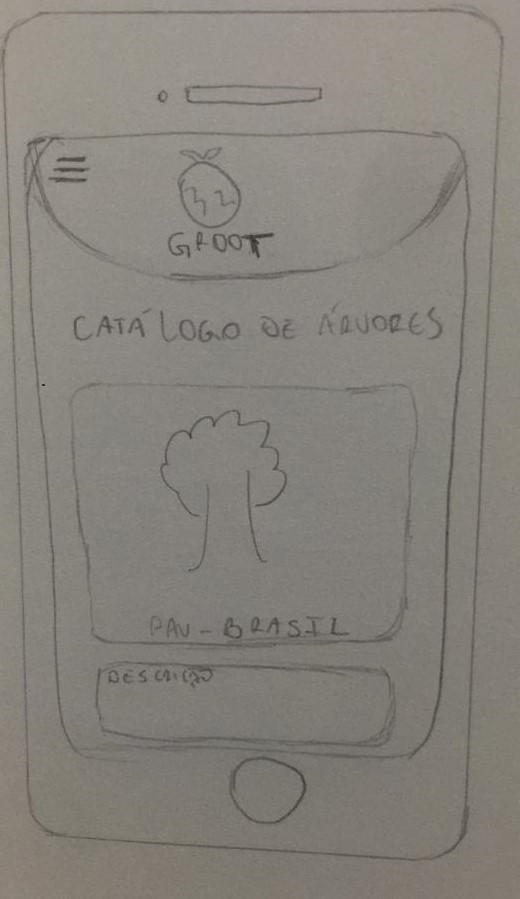 GROOT
CATÁLOGO DE ÁRVORES
PAU-BRASIL
DESCRIÇÃO